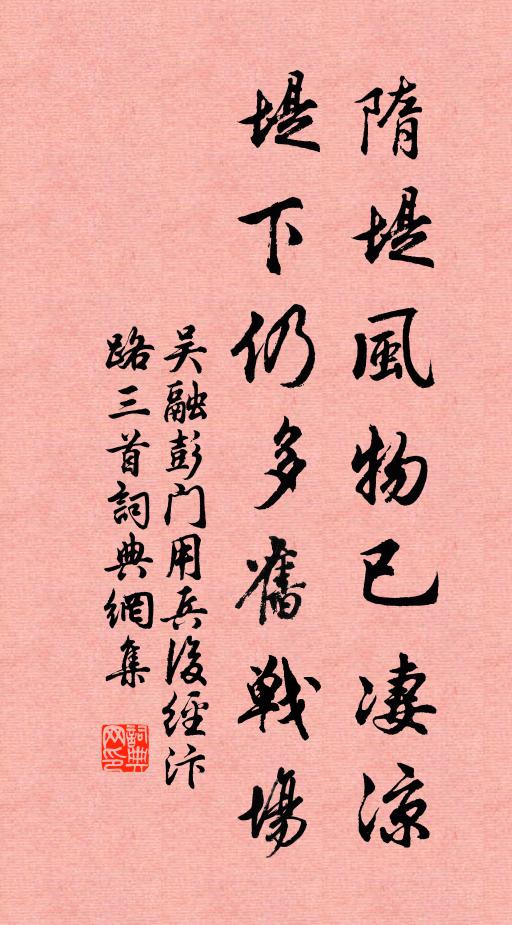 隋堤風物已凄涼
堤下仍多舊戰場
吴融彭门用兵後經汴
路三首詞典網集
詞典
网印